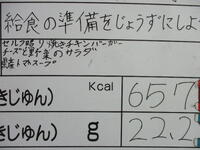 給食の準備をじょうずにしよ
セルフ照り焼きチキンバーガー
チーズと野菜のサラダ
トマトスープ
きじゅん) Kcal 657
きじゅん) g 22.2